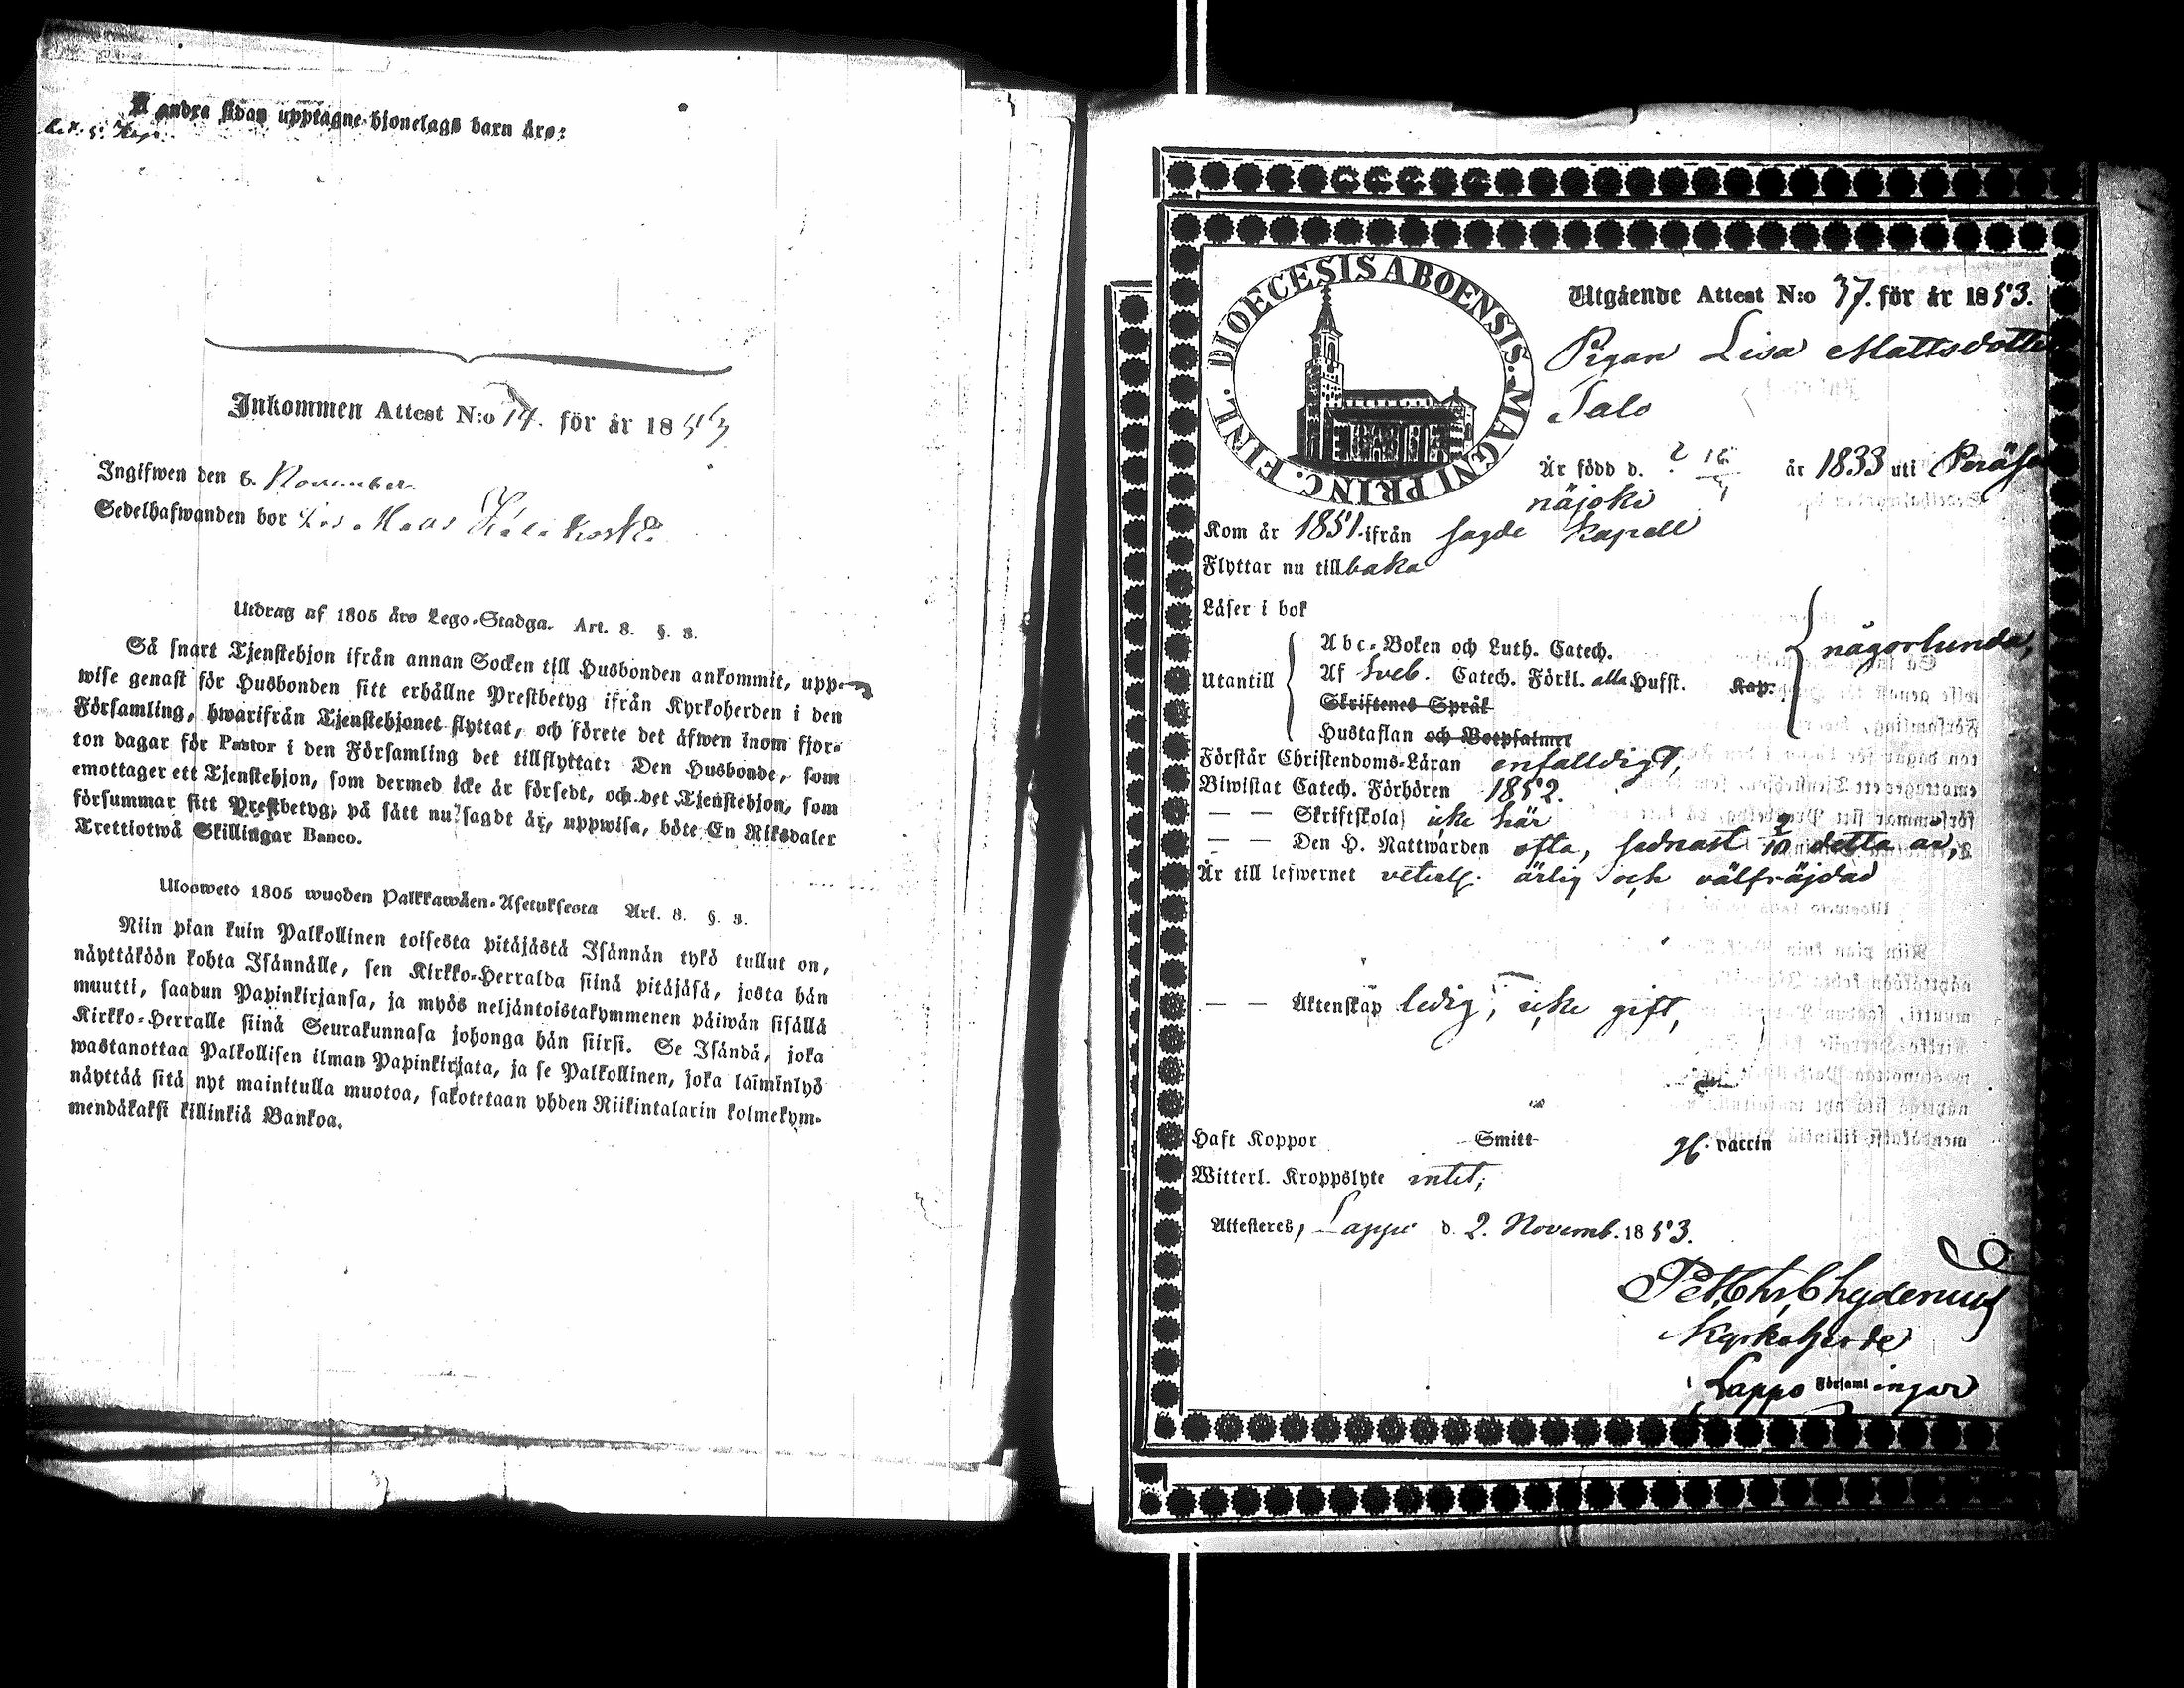 Å andra sidan upptagne hjonelags barn äro:
Inkommen Attest N:o 74. för år 1853
Ingifwen den 6. November
Sedelhafwanden bor hos Matts Kalakoski
Utdrag af 1805 års Lego-Stadga. Art. 8. §. 3.
Så snart Tjenstehjon ifrån annan Socken till Husbonden ankommit, upp-
wise genast för Husbonden sitt erhållne Prestbetyg ifrån Kyrkoherden i den
Församling, hwarifrån Tjenstehjonet flyttat, och förete det äfwen inom fjor-
ton dagar för Pastor i den Församling det tillflyttat: Den Husbonde, som
emottager ett Tjenstehjon, som dermed icke är försedt, och det Tjenstehjon, som
försummar sitt Prestbetyg, på sätt nu sagdt är, uppwisa, böte En Riksdaler
Trettiotwå Skillingar Banco.
Ulosweto 1805 wuoden Palkkawäen-Asetuksesta Art. 8. §. 3.
Niin pian kuin Palkollinen toisesta pitäjästä Isännän tykö tullut on,
näyttäköön kohta Isännälle, sen Kirkko-Herralda siinä pitäjäsä, josta hän
muutti, saadun Papinkirjansa, ja myös neljäntoistakymmenen päiwän sisällä
Kirkko-Herralle siinä Seurakunnasa johonga hän siirsi. Se Isändä, joka
wastanottaa Palkollisen ilman Papinkirjata, ja se Palkollinen, joka laiminlyö
näyttää sitä nyt mainitulla muotoa, sakotetaan yhden Riikintalarin kolmekym-
mendäkaksi killinkiä Bankoa.
DIOECESIS ABOENSIS. MAGNI PRINC. FINL.
Utgående Attest N:o 37. för år 1853.
Pigan Lisa Mattsdotter
Salo
Är född d. 16 år 1833 uti Peräse
näjoki
Kom år 1851 ifrån sagde kapell
Flyttar nu tillbaka
Läser i bok
Abc-Boken och Luth. Catech.
någorlunda,
Utantill Af Sveb. Catech. Förkl. alla Hufst. Kap.
Skriftenes Språk
Hustaflan och Botpsalmer
Förstår Christendoms-Läran enfalldigt,
Biwistat Catech. Förhören 1852.
— — Skriftskola icke här
— — Den H. Nattwarden ofta, sednast 2/10 detta år,
Är till lefwernet veterl. ärlig och välfräjdad
— — Äktenskap ledig, icke gift,
Haft Koppor Smitt H. vaccin
Witterl. Kroppslyte intet;
Attesteres, Lappo d. 2. Novemb. 1853.
Chydenius
Kyrkoherde
i Lappo Församl ingar